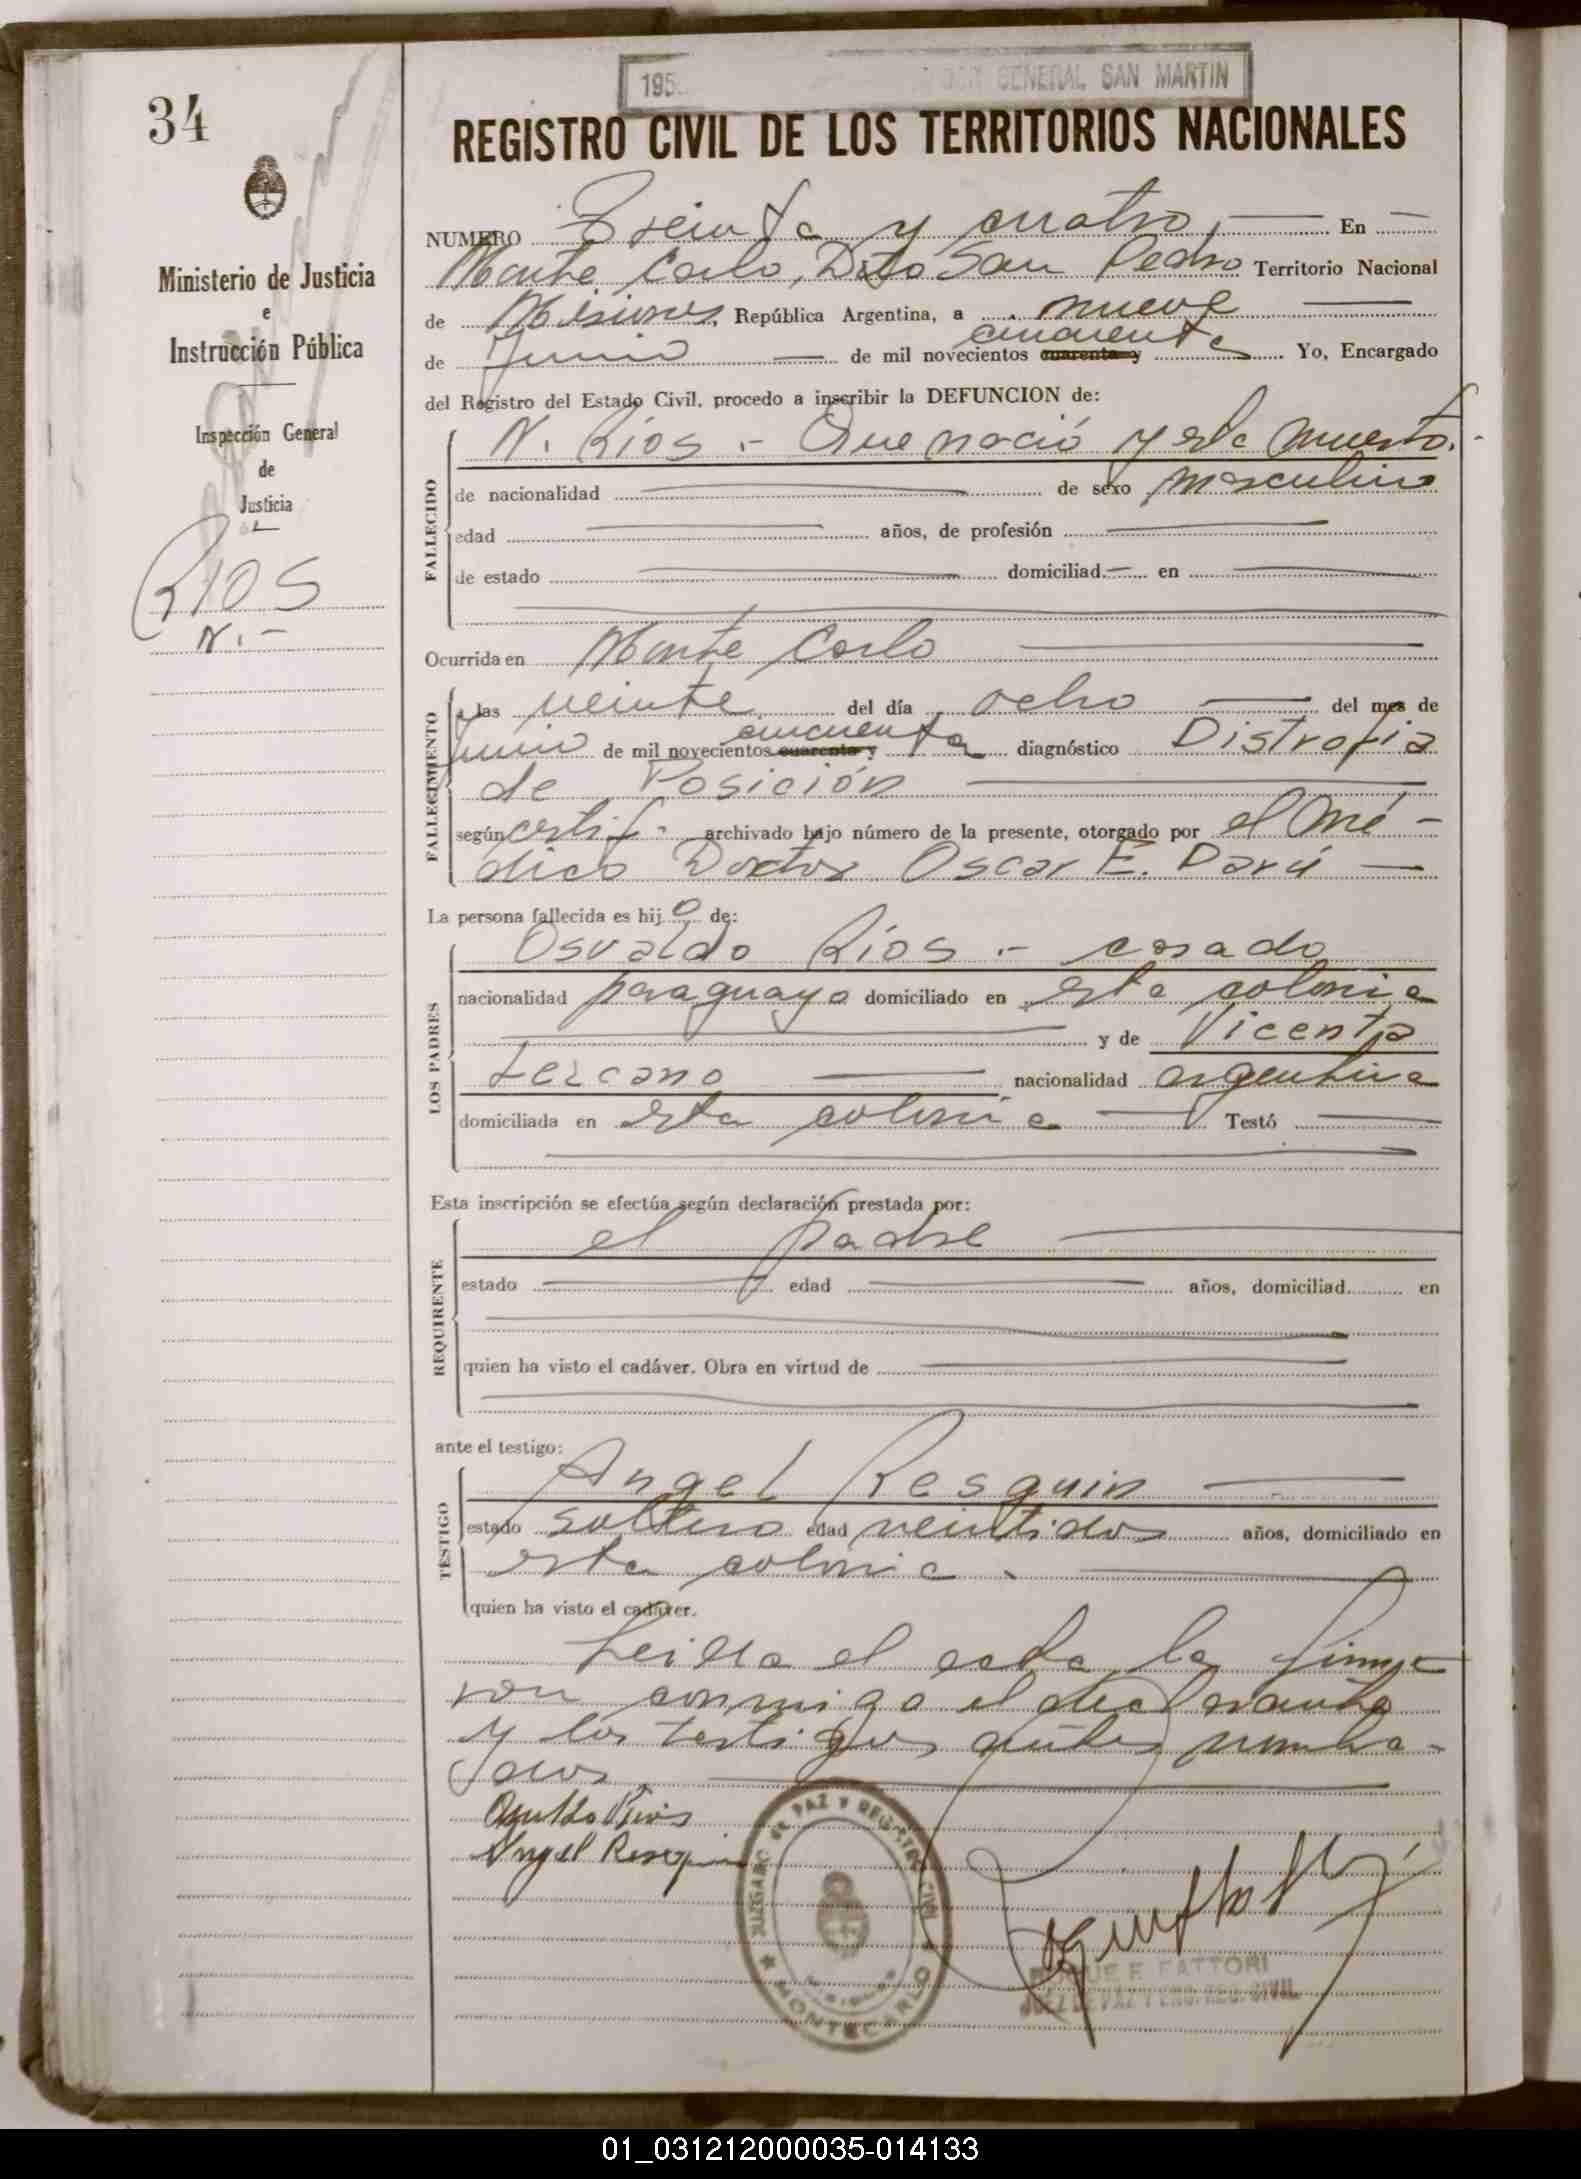 34
195 GENERAL SAN MARTIN
REGISTRO CIVIL DE LOS TERRITORIOS NACIONALES
Ministerio de Justicia
e
Instrucción Pública
Inspección General
de
Justicia
RIOS
N.-
NUMERO Treinta y cuatro, En
Monte Carlo, Dto San Pedro Territorio Nacional
de Misiones, República Argentina, a nueve
de Junio de mil novecientos cuarenta y cincuenta Yo, Encargado
del Registro del Estado Civil, procedo a inscribir la DEFUNCION de:
FALLECIDO
N. Ríos.- Que nació y esta muerto.-
de nacionalidad de sexo masculino
edad años, de profesión
de estado domiciliad en
Ocurrida en Monte Carlo
FALLECIMIENTO
a las veinte del día ocho del mes de
Junio de mil novecientos cuarenta y cincuenta diagnóstico Distrofia
de Posición
según certif. archivado bajo número de la presente, otorgado por el Mé-
dico Doctor Oscar E. Darú
La persona fallecida es hij o de:
LOS PADRES
Osvaldo Ríos.- casado
nacionalidad paraguayo domiciliado en esta colonia
y de Vicenta
Lezcano nacionalidad argentina
domiciliada en esta colonia Testó
Esta inscripción se efectúa según declaración prestada por:
REQUIRENTE
el padre
estado edad años, domiciliad en
quien ha visto el cadáver. Obra en virtud de
ante el testigo:
TESTIGO
Angel Resquin
estado soltero edad veintidos años, domiciliado en
esta colonia.
quien ha visto el cadáver.
Leida el acta, la firma
ron conmigo el declarante
y los testigos antes nombra-
dos.
Osvaldo Rios
Angel Resquin
JUZGADO DE PAZ Y REGISTRO CIVIL
MISIONES
MONTECARLO
ROQUE F. FATTORI
JUEZ DE PAZ Y ENC. REG. CIVIL
01_031212000035-014133